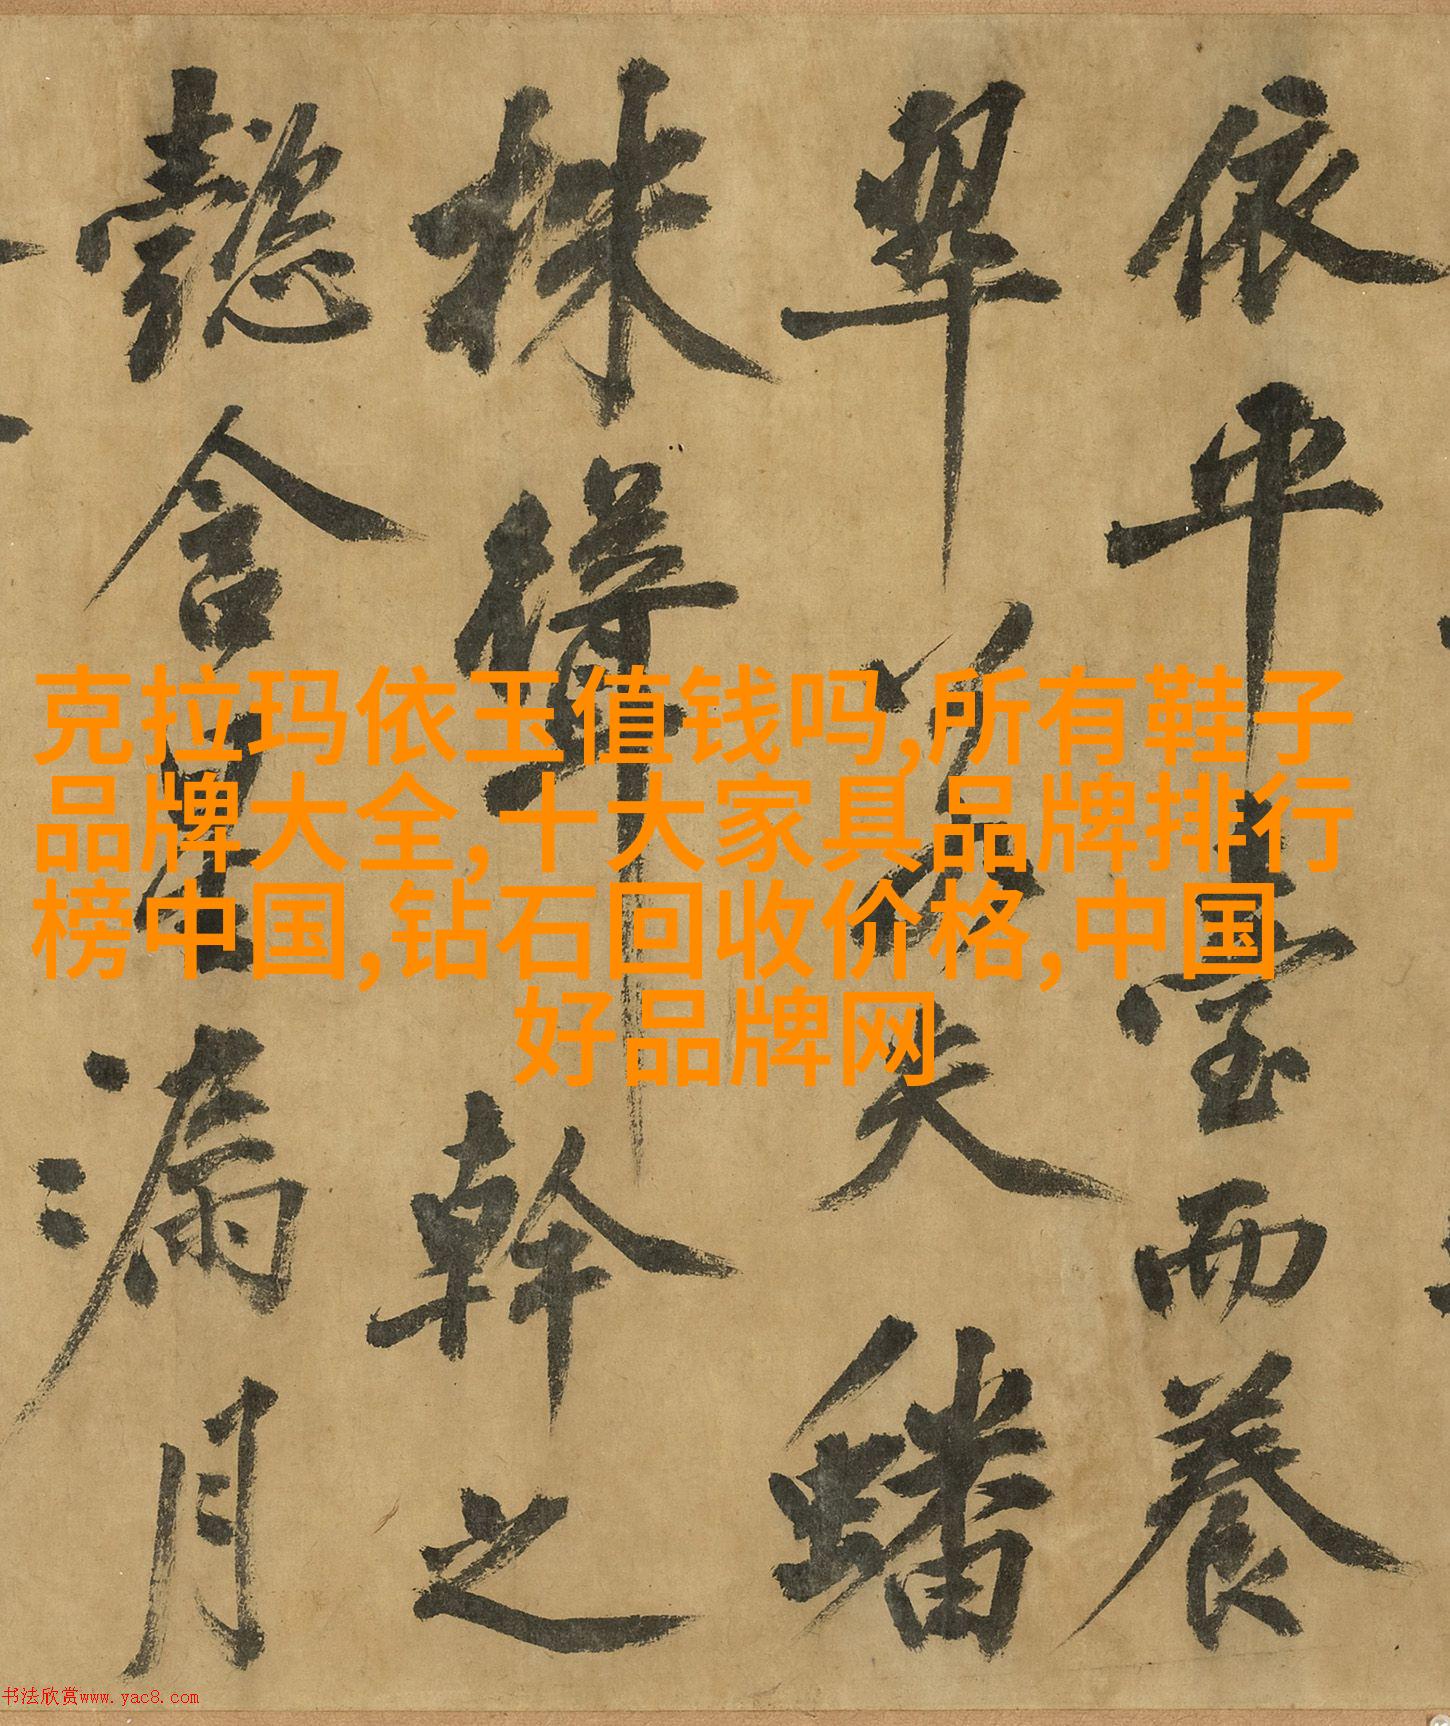 依平臺而養
翠以夫蟠
株聳幹之
懿含星漏月
克拉玛依玉值钱吗,所有鞋子
品牌大全,十大家具品牌排行
榜中国,钻石回收价格,中国
好品牌网
书法欣赏www.yac8.com